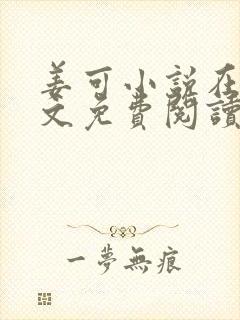 姜可小说在
文免費閱讀
一夢無痕